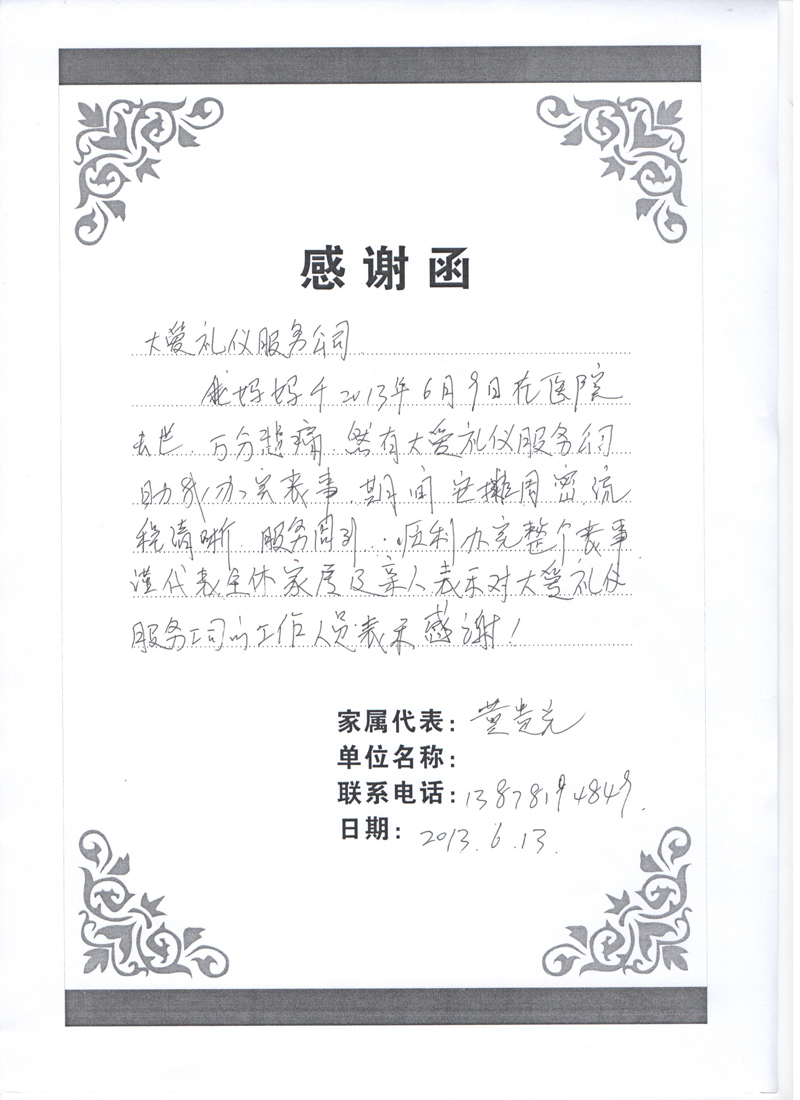 感谢函
大爱礼仪服务公司
我妈妈于2013年6月9日在医院
去世.万分悲痛.然有大爱礼仪服务公司
助我办完丧事.期间安排周密.流
程清晰.服务周到.顺利办完整个丧事
谨代表全体家属及亲人表示对大爱礼仪
服务公司的工作人员表示感谢!
家属代表:黄贵
单位名称:
联系电话:13878194849.
日期:2013.6.13.